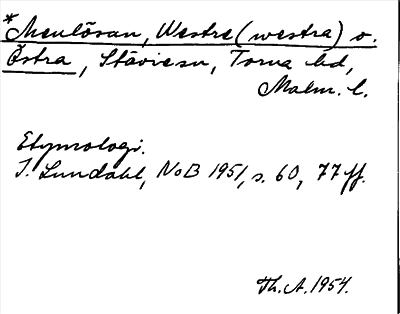 *Menlösan, Westre (westra) o.
Östra, Stäviesn, Torna hd,
Malm. l.
Etymologi.
I. Lundahl, NoB 1951, s. 60, 77 ff.
Th. A. 1954.